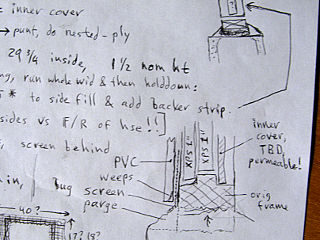 : inner cover
→ punt, do nested-ply
29 3/4 inside, 1 1/2 nom ht
ng, run whole wid & then holddown:
* to side fill & add backer strip.
sides vs F/R of hse!!]
, screen behind
PVC
XPS 1"
XPS 1"
inner
cover,
TBD,
permeable!
weeps
in, Bug
screen
parge
orig
frame
40?
17? 18?